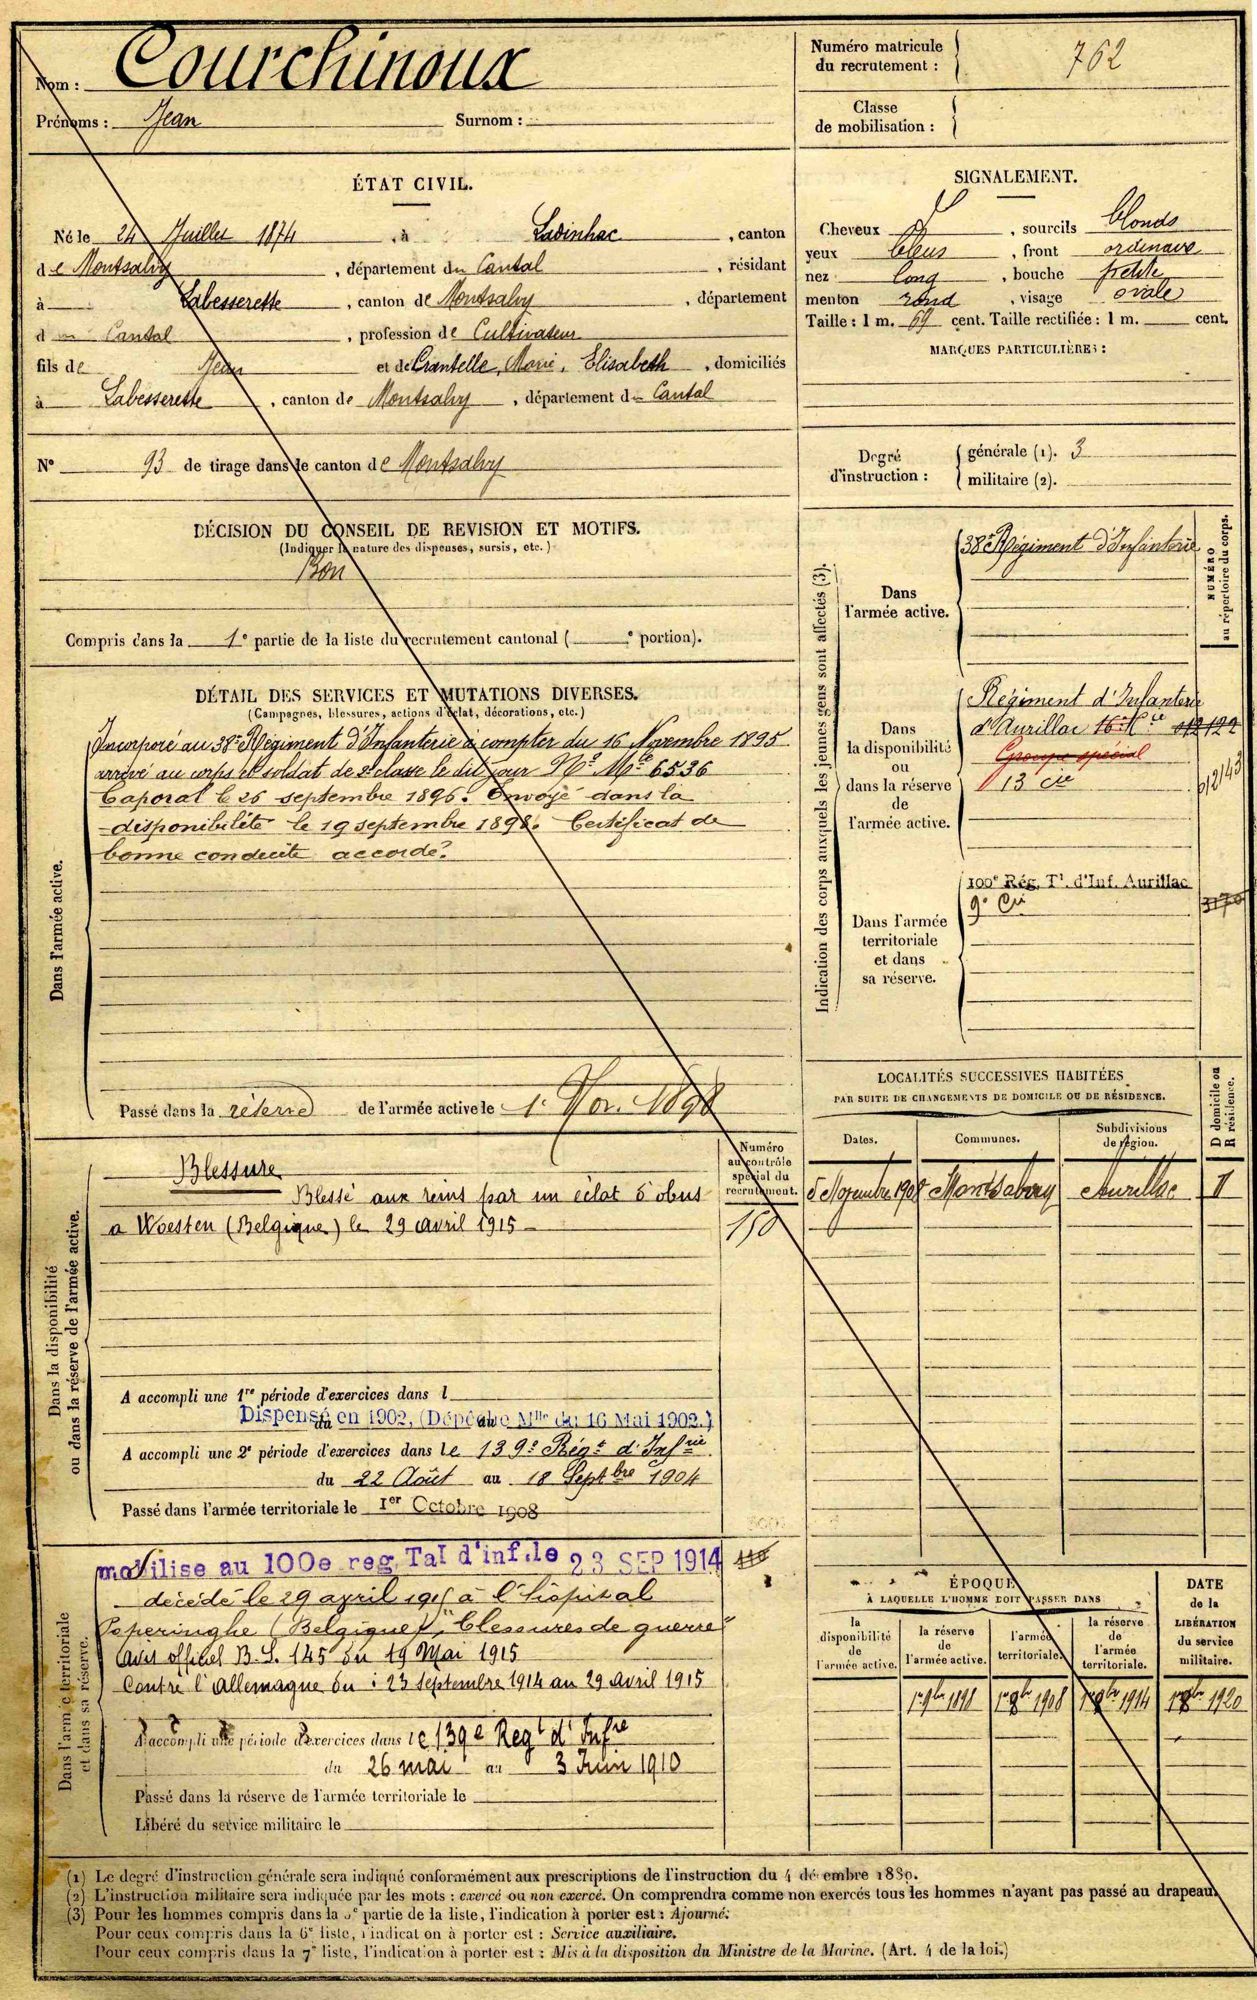 Nom : Courchinoux
Prénoms : Jean Surnom :
Numéro matricule du recrutement : 762
Classe de mobilisation :
ÉTAT CIVIL.
Né le 24 Juillet 1874, à Ladinhac, canton
de Montsalvy, département du Cantal, résidant
à Labesserette, canton de Montsalvy, département
du Cantal, profession de Cultivateur
fils de Jean et de Crantelle, Marie, Elisabeth, domiciliés
à Labesserette, canton de Montsalvy, département du Cantal
N° 93 de tirage dans le canton de Montsalvy
SIGNALEMENT.
Cheveux , sourcils blonds
yeux bleus, front ordinaire
nez long, bouche petite
menton rond, visage ovale
Taille : 1 m. 69 cent. Taille rectifiée : 1 m. cent.
MARQUES PARTICULIÈRES :
Degré d'instruction :
générale (1). 3
militaire (2).
DÉCISION DU CONSEIL DE REVISION ET MOTIFS.
(Indiquer la nature des dispenses, sursis, etc.)
Bon
Compris dans la 1e partie de la liste du recrutement cantonal ( e portion).
DÉTAIL DES SERVICES ET MUTATIONS DIVERSES.
(Campagnes, blessures, actions d'éclat, décorations, etc.)
Dans l'armée active.
Incorporé au 38e Régiment d'Infanterie à compter du 16 Novembre 1895
arrivé au corps et soldat de 2e classe le dit jour No Mle 6536
Caporal le 26 septembre 1896. Envoyé dans la
disponibilité le 19 septembre 1898. Certificat de
bonne conduite accordé.
Passé dans la réserve de l'armée active le 1er Nov. 1898
Indication des corps auxquels les jeunes gens sont affectés (3).
NUMÉRO au répertoire du corps.
Dans l'armée active.
38e Régiment d'Infanterie
Dans la disponibilité ou dans la réserve de l'armée active.
Régiment d'Infanterie
d'Aurillac 16e Cie 012122
Groupe spécial
13 Cie 012143
Dans l'armée territoriale et dans sa réserve.
100e Rég. Tl d'Inf. Aurillac
9e Cie 3170
LOCALITÉS SUCCESSIVES HABITÉES
PAR SUITE DE CHANGEMENTS DE DOMICILE OU DE RÉSIDENCE.
Dates. Communes. Subdivisions de région. D domicile ou R résidence.
5 Novembre 1908 Montsalvy Aurillac
Dans la disponibilité ou dans la réserve de l'armée active.
Numéro au contrôle spécial du recrutement.
150
Blessure
Blessé aux reins par un éclat d'obus
a Woesten (Belgique) le 29 avril 1915 -
A accompli une 1re période d'exercices dans l
Dispensé en 1902, (Dépêche Mlle du 16 Mai 1902.)
du au
A accompli une 2e période d'exercices dans le 139e Régt d'Infrie
du 22 Août au 18 Septbre 1904
Passé dans l'armée territoriale le 1er Octobre 1908
Dans l'armée territoriale et dans sa réserve.
mobilise au 100e reg. Tal d'inf. le 23 SEP 1914
décédé le 29 april 1915 à l'hôpital
Peperinghe (Belgique), "blessures de guerre"
avis officiel B.S. 145 du 19 Mai 1915
Contre l'allemagne du : 23 septembre 1914 au 29 avril 1915
A accompli une période d'exercices dans le 139e Regt d'Infre
du 26 mai au 3 Juin 1910
Passé dans la réserve de l'armée territoriale le
Libéré du service militaire le
ÉPOQUE
À LAQUELLE L'HOMME DOIT PASSER DANS
la disponibilité de l'armée active. la réserve de l'armée active. l'armée territoriale. la réserve de l'armée territoriale.
DATE de la LIBÉRATION du service militaire.
1er 9bre 1898 1er 8bre 1908 1er 8bre 1914 1er 8bre 1920
(1) Le degré d'instruction générale sera indiqué conformément aux prescriptions de l'instruction du 4 décembre 1889.
(2) L'instruction militaire sera indiquée par les mots : exercé ou non exercé. On comprendra comme non exercés tous les hommes n'ayant pas passé au drapeau.
(3) Pour les hommes compris dans la 5e partie de la liste, l'indication à porter est : Ajourné.
Pour ceux compris dans la 6e liste, l'indication à porter est : Service auxiliaire.
Pour ceux compris dans la 7e liste, l'indication à porter est : Mis à la disposition du Ministre de la Marine. (Art. 4 de la loi.)